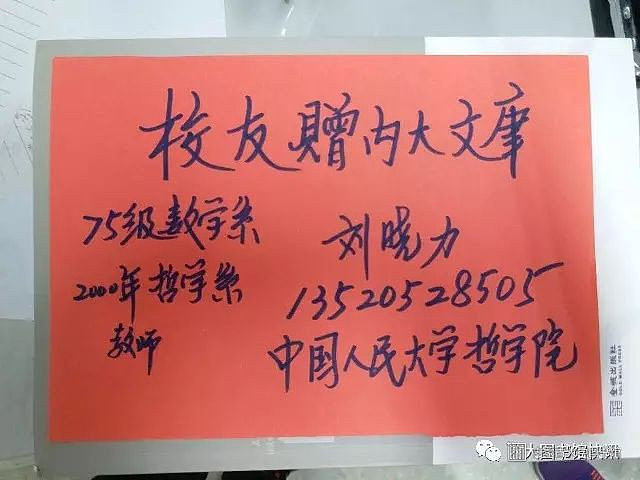 校友赠内大文库
75级数学系
2000年哲学系
教师
刘晓力
13520528505
中国人民大学哲学院
金城出版社
GOLD WALL PRESS
大图书馆快讯